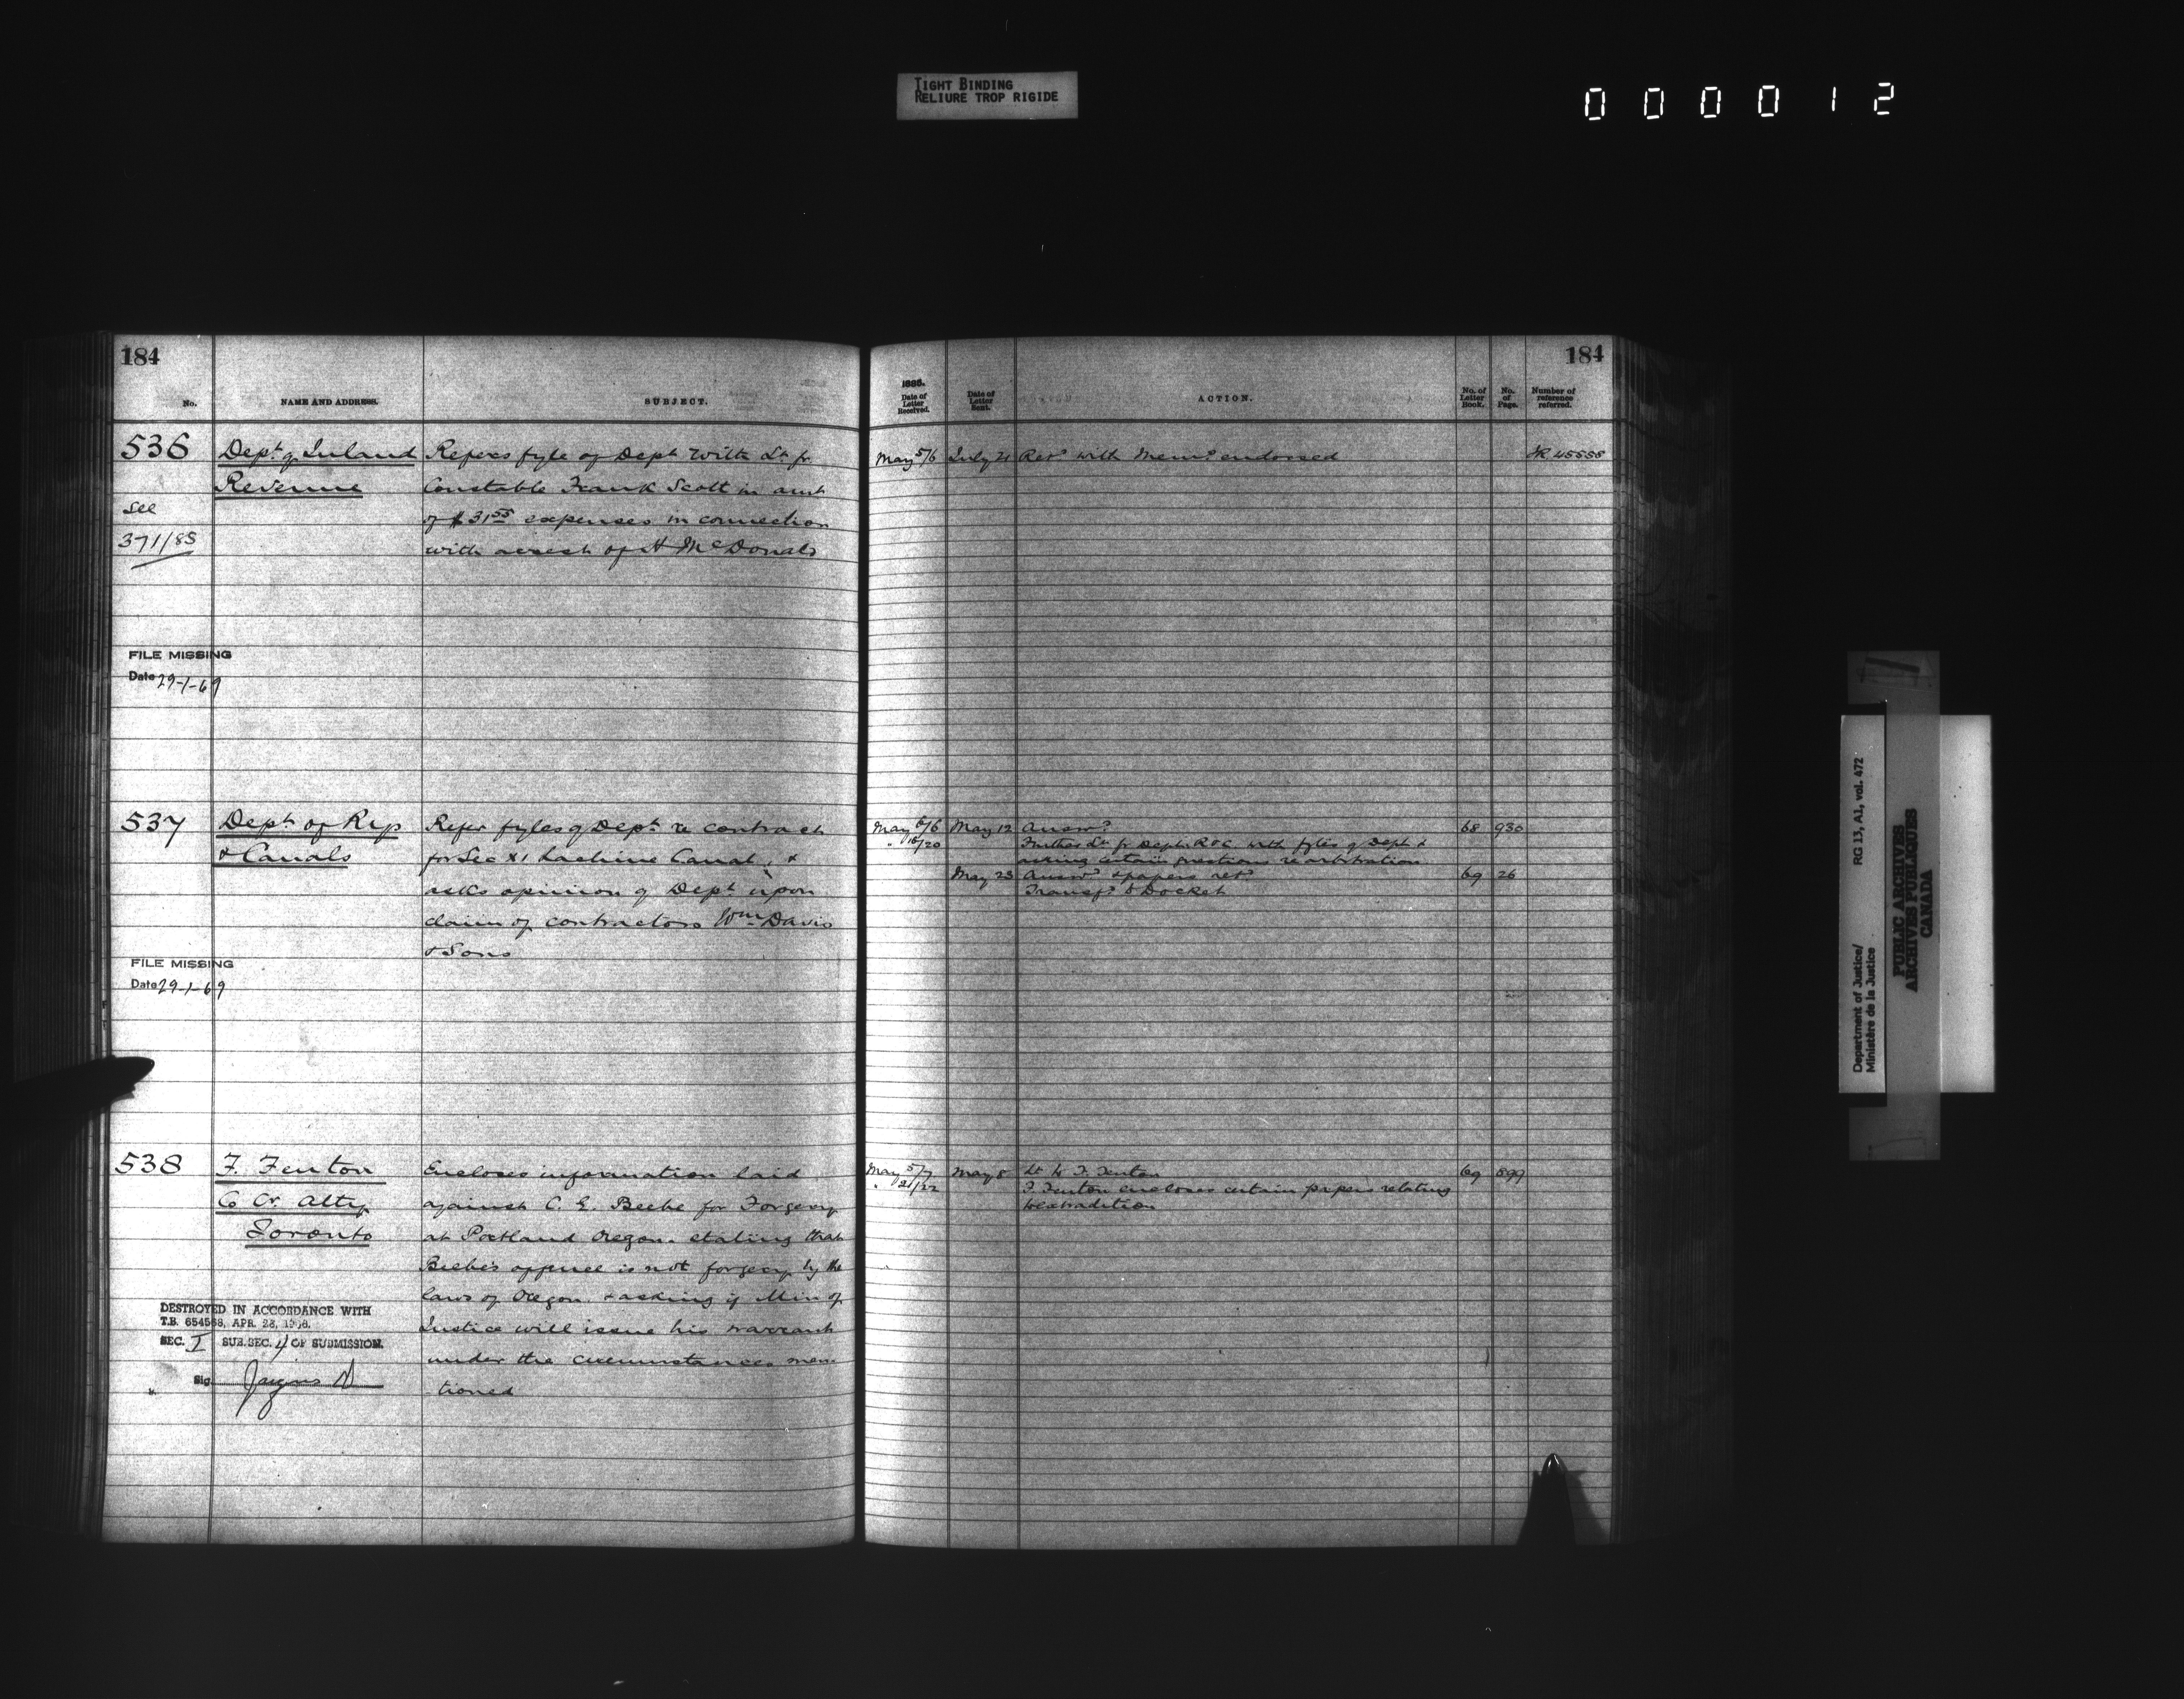 TIGHT BINDING
RELIURE TROP RIGIDE
000012
184
No.
NAME AND ADDRESS.
SUBJECT.
536
Dept. of Inland
Revenue
See
371/85
Refers fyle of Dept with Lr. fr
Constable Frank Scott in amt
of $31 55 expenses in connection
with arrest of H McDonald
FILE MISSING
Date 29-1-69
537
Dept of Rys
& Canals
Refer fyles of Dept. re contract
for Sec XI Lachine Canal, &
asks opinion of Dept upon
claim of contractors Wm Davis
& Sons
FILE MISSING
Date 29-1-69
538
F. Fenton
Co Cr. Atty
Toronto
Encloses information laid
against C. E. Beebe for Forgery
at Portland Oregon. stating that
Beebe's offence is not forgery by the
laws of Oregon & asking if Min of
Justice will issue his warrant
under the circumstances men-
tioned
DESTROYED IN ACCORDANCE WITH
T.B. 654568, APR. 28, 19
SEC. I SUB.SEC. 4 OF SUBMISSION.
Sig.
184
Date of
Letter
Received.
Date of
Letter
Sent.
ACTION.
No. of
Letter
Book.
No.
of
Page.
Number of
reference
referred.
May 5/6 July 21 Retd with Memo endorsed
May 6/6 May 12 Answd 68 930
" 18/20 Further Lr. fr Dept. R & C. with fyles of Dept &
asking certain questions re arbitration
May 23 Answd & papers retd 69 26
Transfd to Docket
May 5/7 May 8 Lr to F. Fenton 69 899
" 21/22 F. Fenton encloses certain papers relating
to extradition
Department of Justice/ RG 13, A1, vol. 472
Ministère de la Justice
PUBLIC ARCHIVES
ARCHIVES PUBLIQUES
CANADA